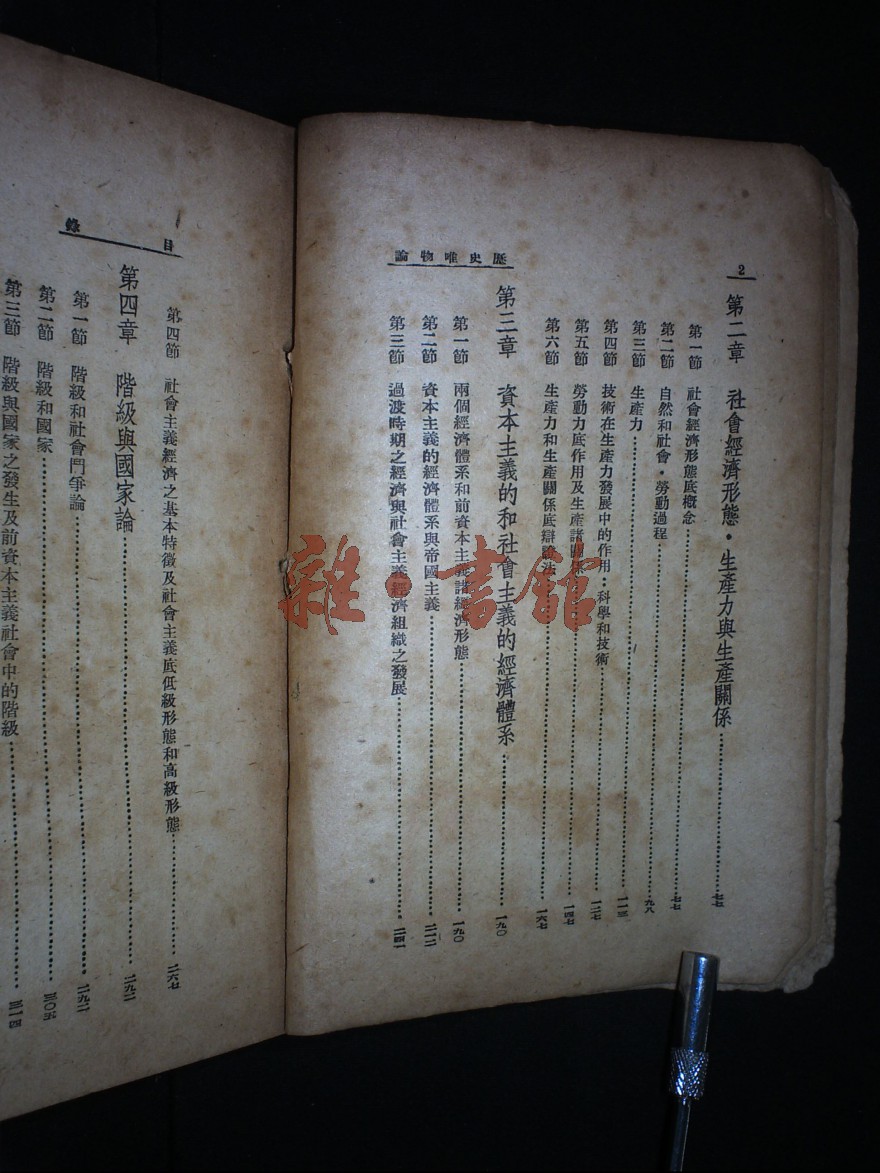 2
歷史唯物論
第二章 社會經濟形態·生產力與生產關係…………七七
第一節 社會經濟形態底概念…………七七
第二節 自然和社會·勞動過程…………九八
第三節 生產力…………一一三
第四節 技術在生產力發展中的作用·科學和技術…………一二七
第五節 勞動力底作用及生產諸關係…………一四七
第六節 生產力和生產關係底辯證法…………一六七
第三章 資本主義的和社會主義的經濟體系…………一九〇
第一節 兩個經濟體系和前資本主義諸經濟形態…………一九〇
第二節 資本主義的經濟體系與帝國主義…………二一二
第三節 過渡時期之經濟與社會主義經濟組織之發展…………二四一
目錄
第四節 社會主義經濟之基本特徵及社會主義底低級形態和高級形態…………二六七
第四章 階級與國家論…………二九二
第一節 階級和社會鬥爭論…………二九二
第二節 階級和國家…………三〇五
第三節 階級與國家之發生及前資本主義社會中的階級…………三一四
雜·書館